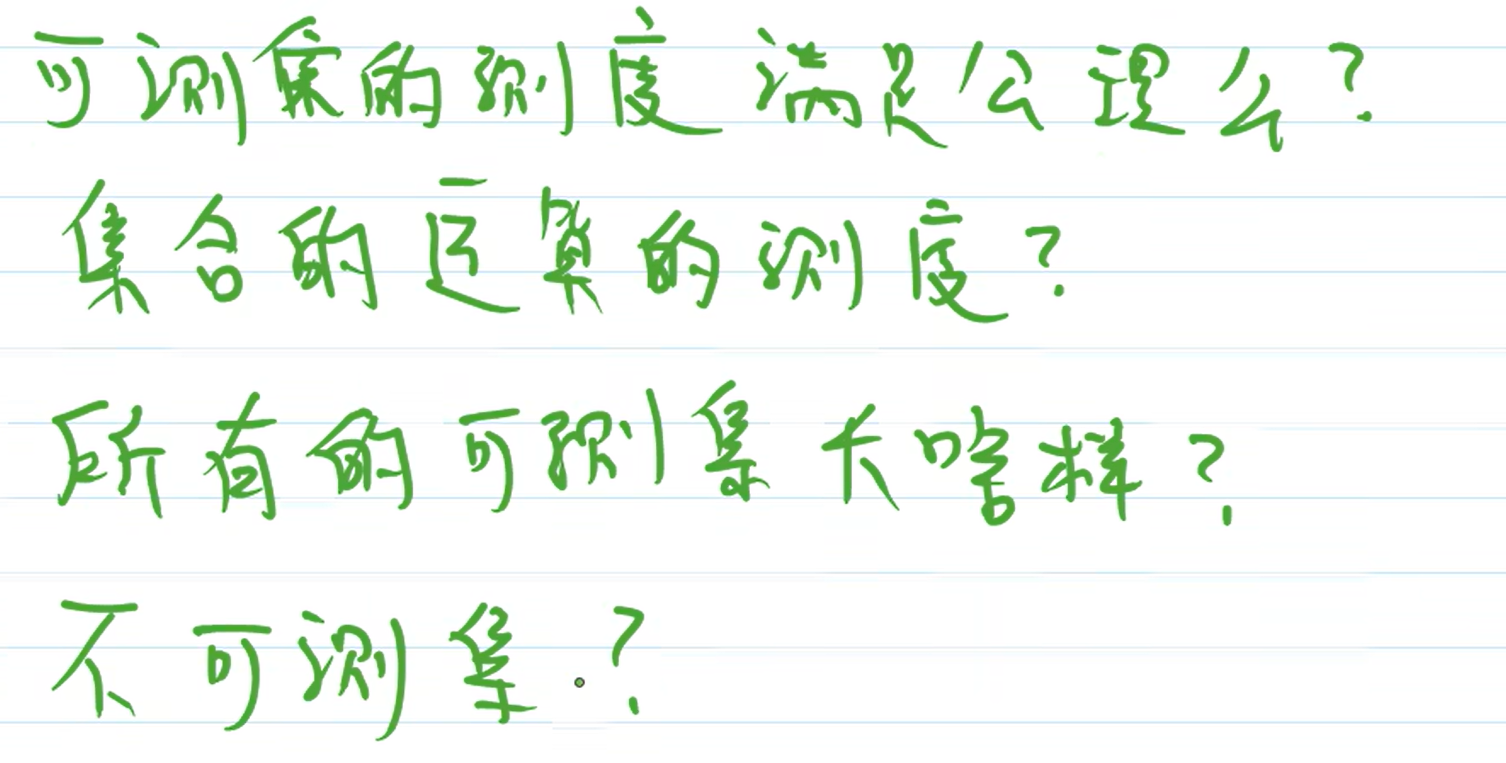 可测集的测度满足公理么？
集合的运算的测度？
所有的可测集长啥样？
不可测集？